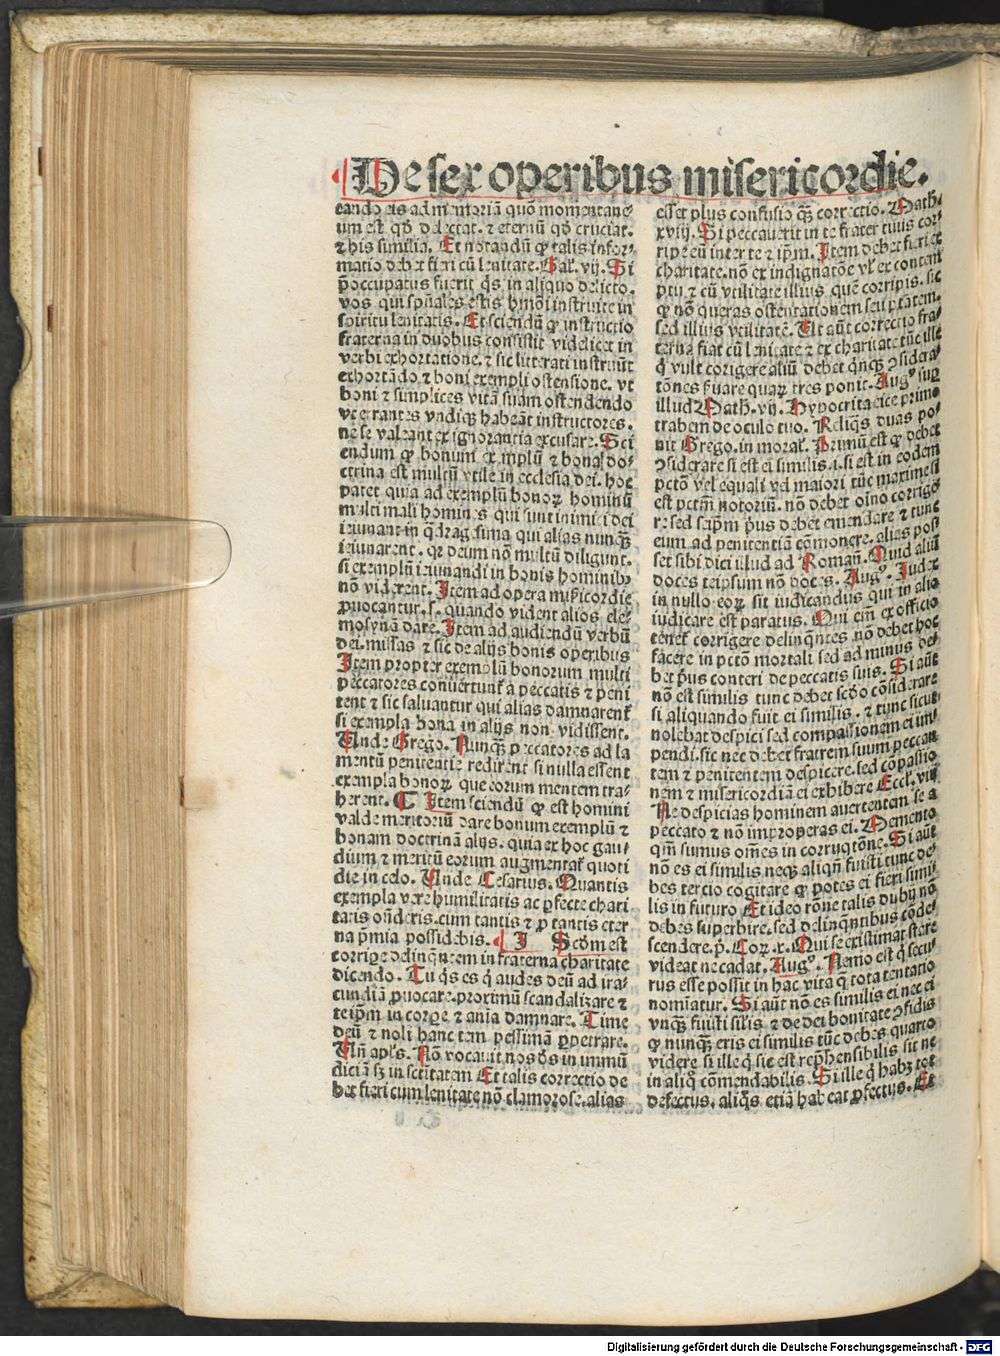 De sex operibus misericordie.
cando eis ad memoriā quō momentane⸗
um est qd̄ delectat. ⁊ eternū qd̄ cruciat.
⁊ his similia. Et notandū ꝙ talis infor⸗
matio debet fieri cū lenitate. Gal̄. vij. Si
p̄occupatus fuerit q̄s in aliquo delicto.
vos qui spūales estis hmōi instruite in
spiritu lenitatis. Et sciendū ꝙ instructio
fraterna in duobus consistit videlicet in
verbi exhortatione. ⁊ sic litterati instruūt
exhortādo ⁊ boni exempli ostensione. vt
boni ⁊ simplices vitā suam ostendendo
vt errantes vndiqꝫ habeāt instructores.
ne se valeant ex ignorantia excusare. Sci
endum ꝙ bonum exemplū ⁊ bona do⸗
ctrina est multū vtile in ecclesia dei. hoc
patet quia ad exemplū bonoꝝ hominū
multi mali homines qui sunt inimici dei
ieiunant in q̄dragesima qui alias nunqꝫ
ieiunarent. qꝛ deum nō multū diligunt.
si exemplū ieiunandi in bonis hominibꝰ
nō viderent. Item ad opera mīsericordie
ꝓuocantur. s. quando vident alios ele⸗
mosynā dare. Item ad audiendū verbū
dei. missas ⁊ sic de alijs bonis operibus
Item propter exemplū bonorum multi
peccatores conuertunt̄ a peccatis ⁊ peni
tent ⁊ sic saluantur qui alias damnarent̄
si exempla bona in alijs non vidissent.
Unde Grego. Nunqꝫ peccatores ad la
mentū penitentie redirent si nulla essent
exempla bonoꝝ que eorum mentem tra⸗
herent. ⸿ Item sciendū ꝙ est homini
valde meritoriū dare bonum exemplū ⁊
bonam doctrinā alijs. quia ex hoc gau⸗
dium ⁊ meritū eorum augmentat̄ quoti
die in celo. Unde Cesarius. Quantis
exempla vere humilitatis ac ꝑfecte chari
tatis on̄deris. cum tantis ⁊ ꝓ tantis eter
na p̄mia possidebis. I Scd̄m est
corripe delinquentem in fraterna charitate
dicendo. Tu q̄s es q̄ audes deū ad ira⸗
cundiā ꝓuocare. proximū scandalizare ⁊
teip̄m in corpe ⁊ aīa damnare. Time
deū ⁊ noli hanc tem pessimā ꝑpetrare.
Un̄ apl̄s. Nō vocauit nos de9 in immū
diciā sꝫ in sctitatem Et talis correctio de
bet fieri cum lenitate nō clamorose. alias
esset plus confusio qꝫ correctio. Math̄.
xviij. Si peccauerit in te frater tuus cor⸗
ripe eū inter te ⁊ ip̄m. Item debet fieri ex
charitate. nō ex indignatōe vl̄ ex contem
ptu ⁊ cū vtilitate illius quē corripis. sic
ꝙ nō queras ostentationem seu
sed illius vtilitatē. Ut aūt correctio fra⸗
terna fiat cū lenitate ⁊ ex charitate tūc ille
q̄ vult corigere aliū debet q̄nqꝫ ꝯsidera⸗
tōnes s̄uare quaꝝ tres ponit. Augꝰ suꝑ
illud Math̄. vij. Hypocrita eice primo
trabem de oculo tuo. Reliq̄s duas po⸗
nit Grego. in moral̄. Primū est ꝙ debet
ꝯsiderare si est ei similis. i. si est in eodem
pctō vel equali vel maiori tūc maxime si
est pctm̄ notoriū. nō debet oīno corrige
re sed seip̄m p̄us debet emendare ⁊ tunc
eum ad penitentiā cōmonere. alias pos
set sibi dici illud ad Roman̄. Quid aliū
doces teipsum nō doces. Augꝰ. Iudex
in nullo eoꝝ sit iudicandus qui in alio
iudicare est paratus. Qui em̄ ex officio
tenet̄ corrigere delinq̄ntes nō debet hoc
facere in pctō mortali sed ad minus de⸗
bet p̄us conteri de peccatis suis. Si aūt
nō est similis tunc debet scd̄o cōsiderare
si aliquando fuit ei similis. ⁊ tunc sicut
nolebat despici sed compassionem ei im⸗
pendi. sic nec debet fratrem suum peccan
tem ⁊ penitentem despicere. sed cōpassio
nem ⁊ misericordiā ei exhibere Eccl. viij
Ne despicias hominem auertentem se a
peccato ⁊ nō improperas ei. Memento
qm̄ sumus om̄es in corruptōne. Si aūt
nō es ei similis neqꝫ aliqn̄ fuisti tunc de⸗
bes tercio cogitare ꝙ potes ei fieri simi⸗
lis in futuro Et ideo rōne talis dubij nō
debes superbire. sed delinq̄ntibus cōde⸗
scendere. p̄. Coꝝ. x. Qui se existimat stare
videat ne cadat. Augꝰ. Nemo est q̄ secu⸗
rus esse possit in hac vita q̄ tota tentatio
nominatur. Si aūt nō es similis ei nec ei
vnqꝫ fuisti sīlis ⁊ de dei bonitate ꝯfidis
ꝙ nunqꝫ eris ei similis tūc debes quarto
videre si ille q̄ sic est rep̄hensibilis sit ne
in aliq̄ cōmendabilis. Si ille q̄ habꝫ tot
defectus. aliq̄s etiā habeat ꝓfectus. Et
Digitalisierung gefördert durch die Deutsche Forschungsgemeinschaft - DFG